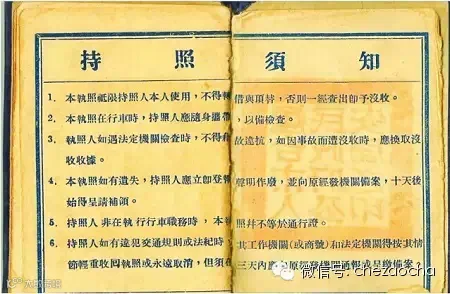 持照須知
1. 本執照祗限持照人本人使用，不得轉借與頂替，否則一經查出卽予沒收。
2. 本執照在行車時，持照人應隨身攜帶，以備檢查。
3. 執照人如遇法定機關檢查時，不得藉故違抗，如因事故而遭沒收時，應換取沒
收收據。
4. 本執照如有遺失，持照人應立卽登報聲明作廢，並向原經發機關備案，十天後
始得呈請補領。
5. 持照人非在執行行車職務時，本執照幷不等於通行證。
6. 持照人如有違犯交通規則或法紀時，其工作機關(或商號)和法定機關得按其情
節輕重收囘執照或永遠取消，但須在三天內應向原經發機關通報或呈繳備案。
微信号: chezdocha